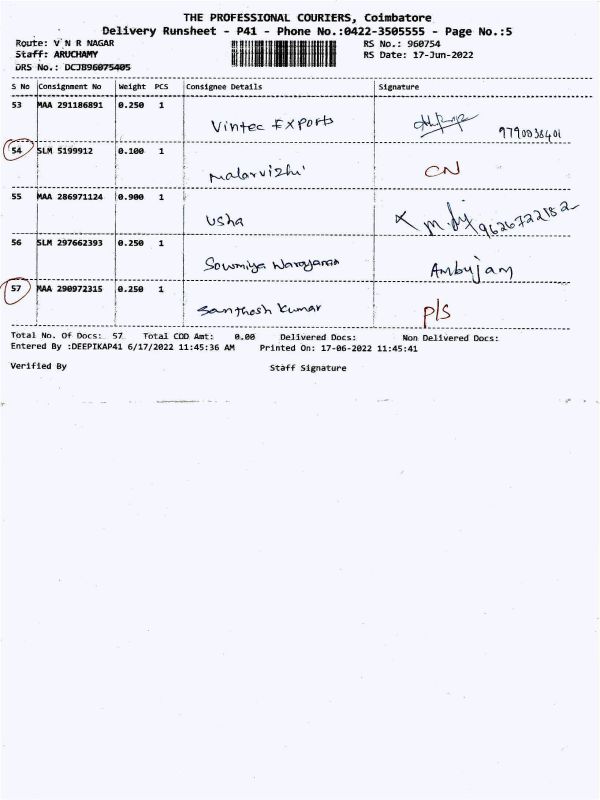 THE PROFESSIONAL COURIERS, Coimbatore
Delivery Runsheet - P41 - Phone No.:0422-3505555 - Page No.:5
Route: V N R NAGAR RS No.: 960754
Staff: ARUCHAMY RS Date: 17-Jun-2022
DRS No.: DCJB96075405
S No Consignment No Weight PCS Consignee Details Signature
53 MAA 291186891 0.250 1
Vintec Exports 9790038401
54 SLM 5199912 0.100 1
Malarvizhi CN
55 MAA 286971124 0.900 1
Usha 9626722182
56 SLM 297662393 0.250 1
Sowmiya Narayanan Ambujam
57 MAA 290972315 0.250 1
Santhosh Kumar P/S
Total No. Of Docs: 57 Total COD Amt: 0.00 Delivered Docs: Non Delivered Docs:
Entered By :DEEPIKAP41 6/17/2022 11:45:36 AM Printed On: 17-06-2022 11:45:41
Verified By Staff Signature